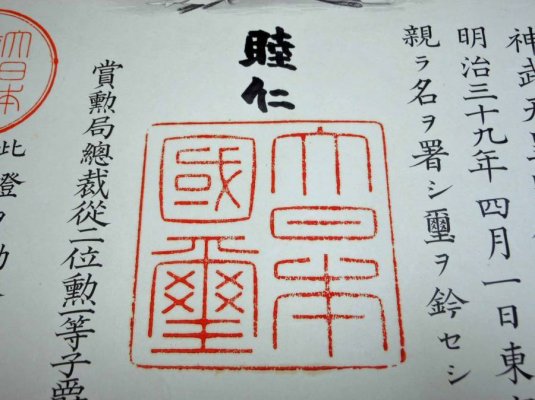 神武天
明治三十九年四月一日東
親ラ名ヲ署シ璽ヲ鈐セシ
睦仁
大日本
國璽
賞勳局總裁從二位勳一等子爵
大日本
此證ヲ